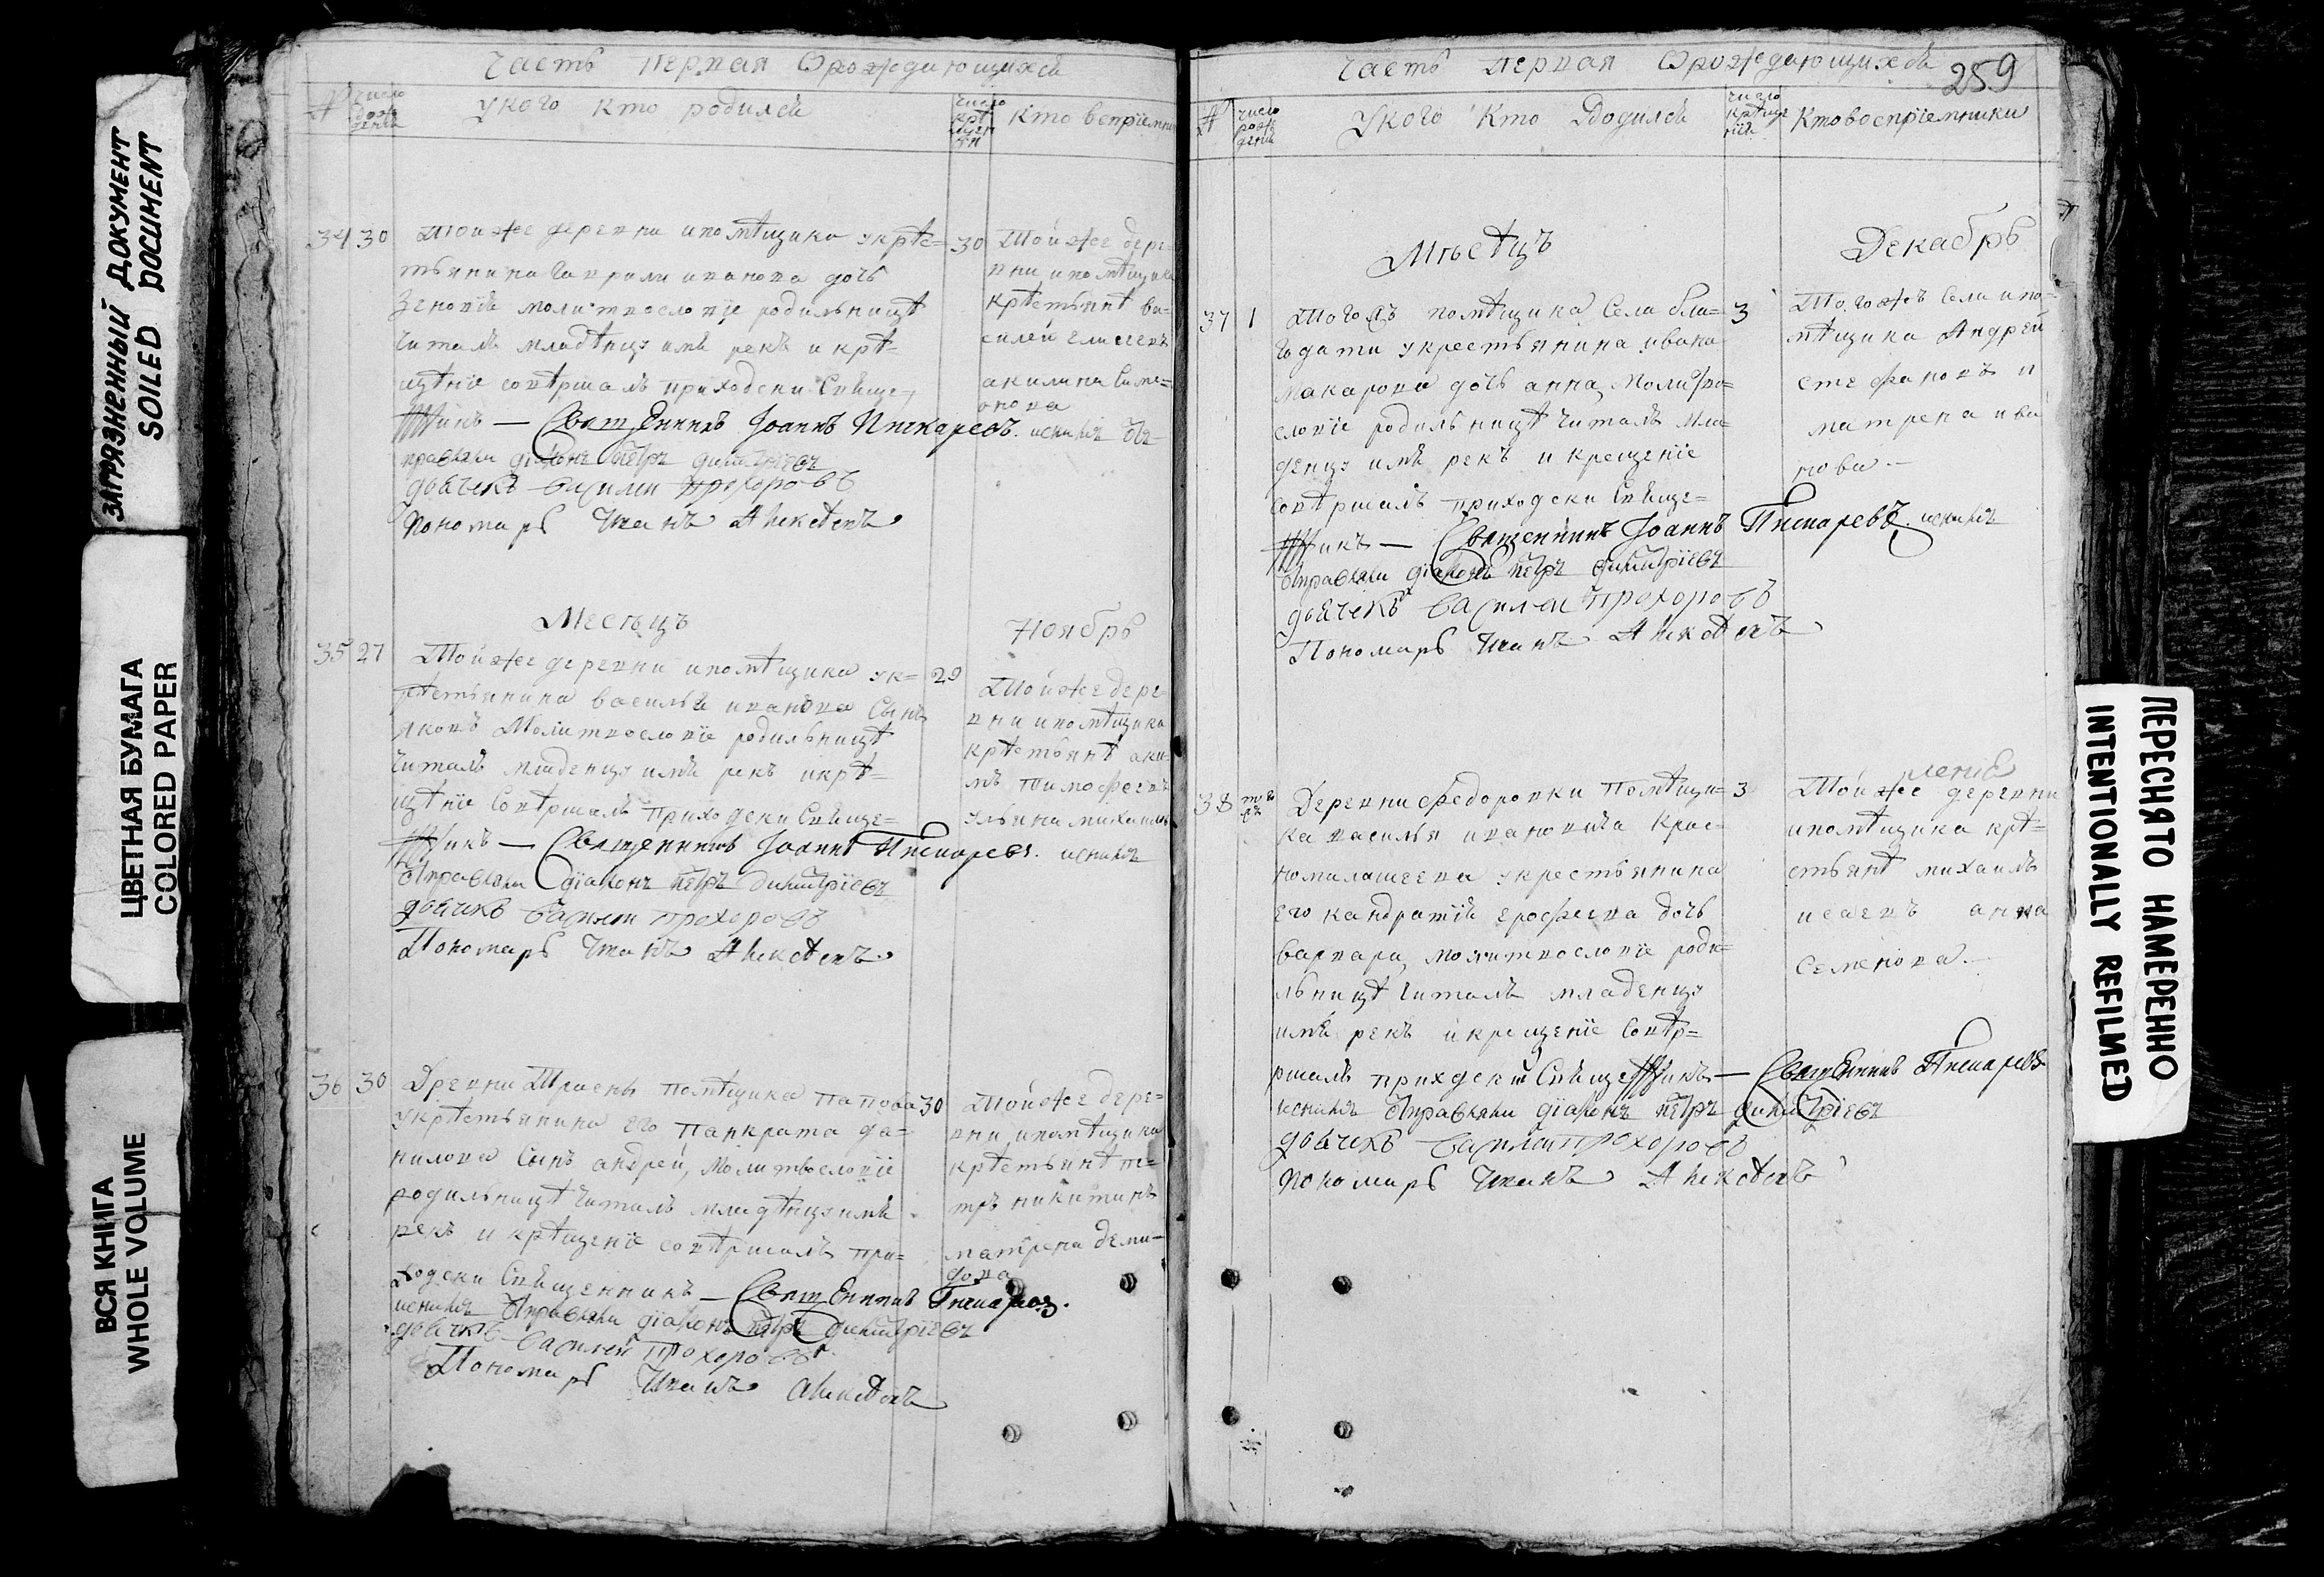 ЗАГРЯЗНЕННЫЙ ДОКУМЕНТ
SOILED DOCUMENT
ЦВЕТНАЯ БУМАГА
COLORED PAPER
ВСЯ КНИГА
WHOLE VOLUME
Часть первая Орождающихся
№ число рождения
У кого кто родился
число крещения
Кто восприемники
34 30
Тойже деревни ипомѣщика укрѣс=
тьянина Гаврили иванова дочь
Зеновия молитвословïе родильницѣ
читалъ младѣнцу имя рекъ и крѣ=
щѣнïе совѣршалъ приходски Свяще=
нникъ — Священникъ Iоаннъ Писаревъ. исним От=
правляли дïаконъ пётръ димитрïевъ
дьячекъ василии прохоровъ
Пономарь Иванъ Алексѣевъ
30
Тойже дере=
вни ипомѣщика
крѣстьянѣ ва=
силей елисеевъ
акилина Симе=
онова
Месяцъ
Ноябрь
35 27
Тойже деревни ипомѣщика ук=
рѣстьянина василья иванова Сынъ
яковъ Молитвословïе родильницѣ
читалъ младенцу имя рекъ икрѣ=
щѣнïе Совѣршалъ приходски Свяще=
нникъ — Священникъ Iоаннъ Писаревъ. исним
Отправляли дïаконъ пётръ димитрïевъ
дьячекъ василии прохоровъ
Пономарь Иванъ Алексѣевъ
29
Тойже дере=
вни ипомѣщика
крѣстьянѣ аки=
мъ тимофеевъ
ульяна михаило
36 30
Древни помѣщика папова
укрѣстьянина его панкрата да=
нилова Сынъ андрей, молитвословïе
родильницѣ читалъ младѣнцу имя
рекъ и крѣщенïе совѣршалъ при=
ходски Священникъ — Священникъ Писаревъ.
исним Отправляли дïаконъ пётръ димитрïевъ
дьячекъ василей прохоровъ
Пономарь Иванъ Алексѣевъ
30
Тойже дере=
вни ипомѣщика
крѣстьянѣ пе=
тръ никитинъ
матрена деми=
дова
Часть первая Орождающихся
259
№ число рождения
У кого Кто Родился
число крѣщенïя
Кто восприемники
Мѣсѣцъ
Декабрь
37 1
Тогожъ помѣщика Села бла=
годати укрестьянина ивана
макарова дочь анна, Молитво=
словïе родильницѣ читалъ мла=
денцу имя рекъ и крещенïе
совѣршалъ приходски Свяще=
нникъ — Священникъ Iоаннъ Писаревъ. исним
Отправляли дïаконъ пётръ димитрïевъ
дьячекъ василеи прохоровъ
Пономарь Иванъ Алексѣевъ
3
Тогожъ Села ипо=
мѣщика Андрей
стефановъ и
матрена ива
нова.—
38
Деревни федоровки Помѣщи=
ка василья ивановича Крас=
номилашеева укрестьянина
его кандратïя ерофеева дочь
варвара, молитвословïе роди=
льницѣ читалъ младенцу
имя рекъ и крещенïе Совѣр=
ршалъ приходский Священникъ — Священникъ Писаревъ
исним Отправляли дïаконъ пётръ димитрïевъ
дьячекъ василеи прохоровъ
Пономарь Иванъ Алексѣевъ
3
Тойже деревни
ипомѣщика крѣ=
стьянѣ михаилъ
исаевъ анна
Семенова.—
ПЕРЕСНЯТО НАМЕРЕННО
INTENTIONALLY REFILMED